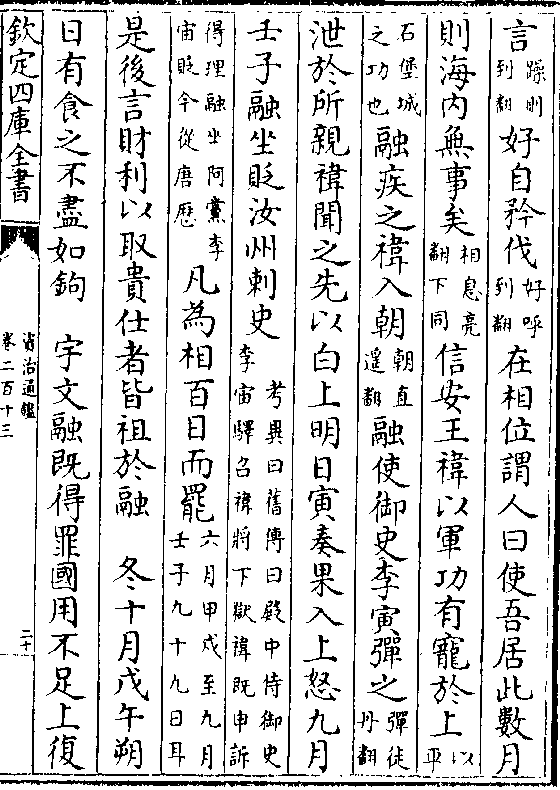 言躁則到翻好自矜伐好呼到翻在相位謂人曰使吾居此數月
則海内無事矣相息亮翻下同信安王禕以軍功有寵於上以平
石堡城之功也融疾之禕入朝朝直遥翻融使御史李寅彈之彈徒丹翻
泄於所親禕聞之先以白上明日寅奏果入上怒九月
壬子融坐貶汝州刺史考異曰舊傳曰殿中侍御史李宙驛召禕將下獄禕既申訴
得理融坐阿黨李宙貶今從唐歴凡為相百日而罷六月甲戍至九月壬子九十九日耳
是後言財利以取貴仕者皆祖於融　冬十月戊午朔
日有食之不盡如鉤　宇文融既得罪國用不足上復
欽定四庫全書
資治通鑑
卷二百十三
二十